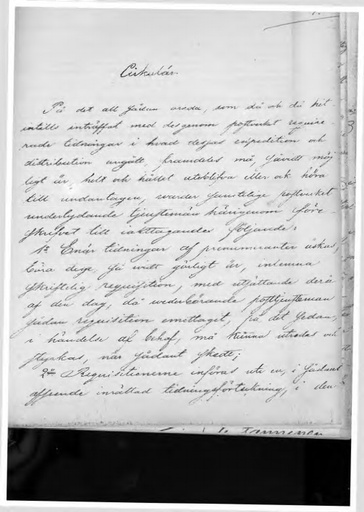 Cirkulär.
På det all sådan oreda, som då och då hit
intills inträffat med desgenom postverket require
rade tidningar i hvad desjas expedition och
distribution angått, framdeles må, såvidt möj
ligt är, helt och hållet uteblifva eller och höra
till undantagen, warder samtelige postverket
underlydande Tjenstemän härigenom före
skrifvet till iakttagande följande:
1o Enär tidningar af prenumeranter äskas,
böra dege, så vidt görligt är, inlemna
skriftelig requisition, med utsättande derå
af den dag, då wederbörande posttjensteman
sådan requisition emottaget, på det sedan,
i händelse af behof, må kunna utredas och
styrkas, när sådant skedt;
2o Requisitionerne införas uti en, i sådant
afseende inrättad tidningsförteckning, i den